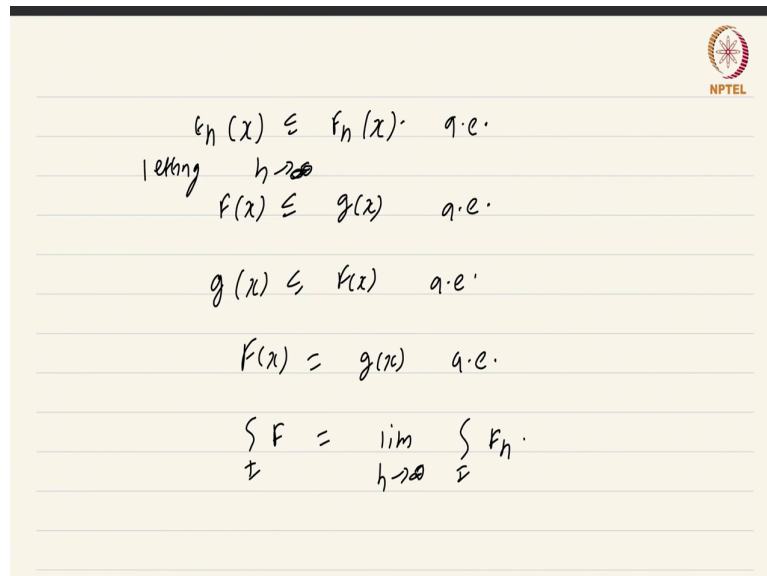 NPTEL
tn(x) ≤ fn(x). a.e.
letting n→∞
F(x) ≤ g(x) a.e.
g(x) ≤ F(x) a.e.
F(x) = g(x) a.e.
∫_I F = lim_{n→∞} ∫_I Fn.